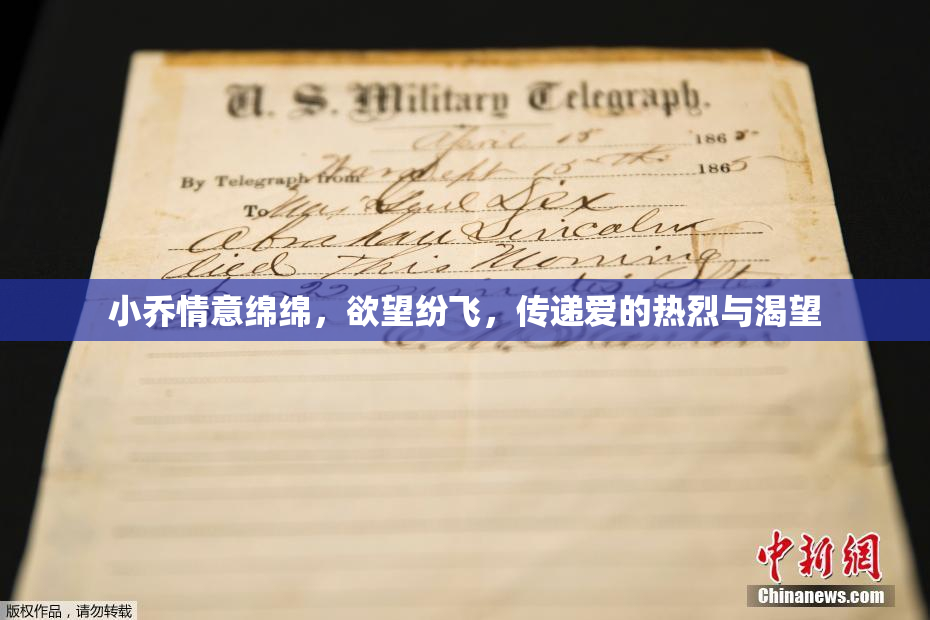 U. S. Military Telegraph.
April 15 1865
By Telegraph from War Dept 15th 1865
To Maj Genl Dix
Abraham Lincoln
died This Morning
at 22 minutes after
小乔情意绵绵，欲望纷飞，传递爱的热烈与渴望
中新网
Chinanews.com
版权作品，请勿转载